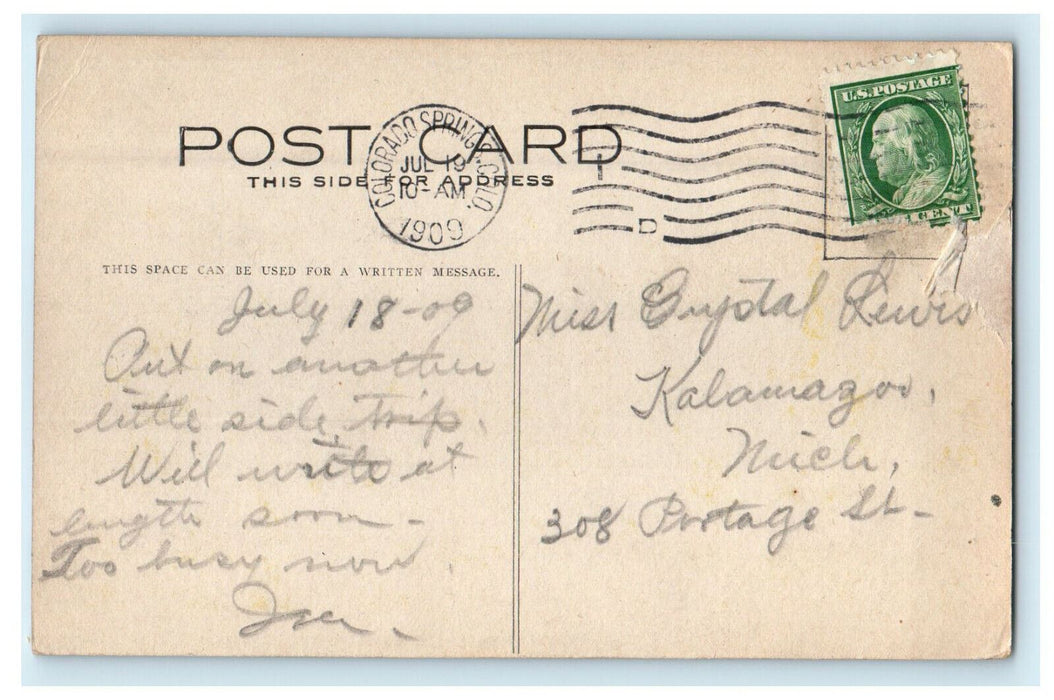 POST CARD
THIS SIDE FOR ADDRESS
COLORADO SPRINGS, COLO.
JUL 19
10-AM
1909
1
D
U.S. POSTAGE
1 CENT
THIS SPACE CAN BE USED FOR A WRITTEN MESSAGE.
July 18-09
Out on another
little side trip.
Will write at
length soon-
Too busy now.
Miss Crystal Lewis
Kalamazoo,
Mich,
308 Portage St-